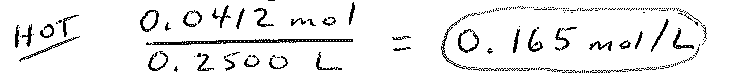 HOT 0.0412 mol / 0.2500 L = 0.165 mol/L